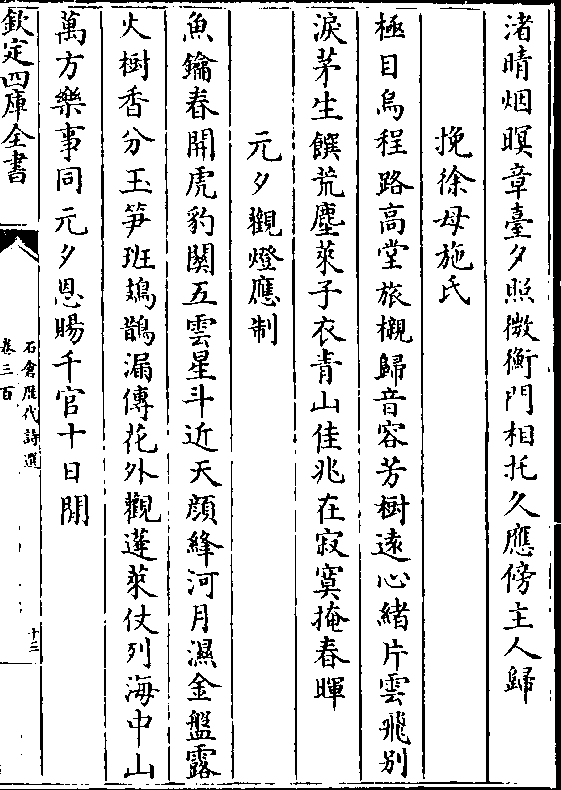 渚晴烟暝章臺夕照微衡門相托久應傍主人歸
挽徐母施氏
極目烏程路高堂旅櫬歸音容芳樹遠心緒片雲飛别
淚茅生饌荒塵萊子衣青山佳兆在寂寞掩春暉
元夕觀燈應制
魚鑰春開虎豹關五雲星斗近天顔絳河月濕金盤露
火樹香分玉笋班鳷鵲漏傳花外觀蓬萊仗列海中山
萬方樂事同元夕恩賜千官十日閒
欽定四庫全書
石倉歷代詩選
卷三百
十三